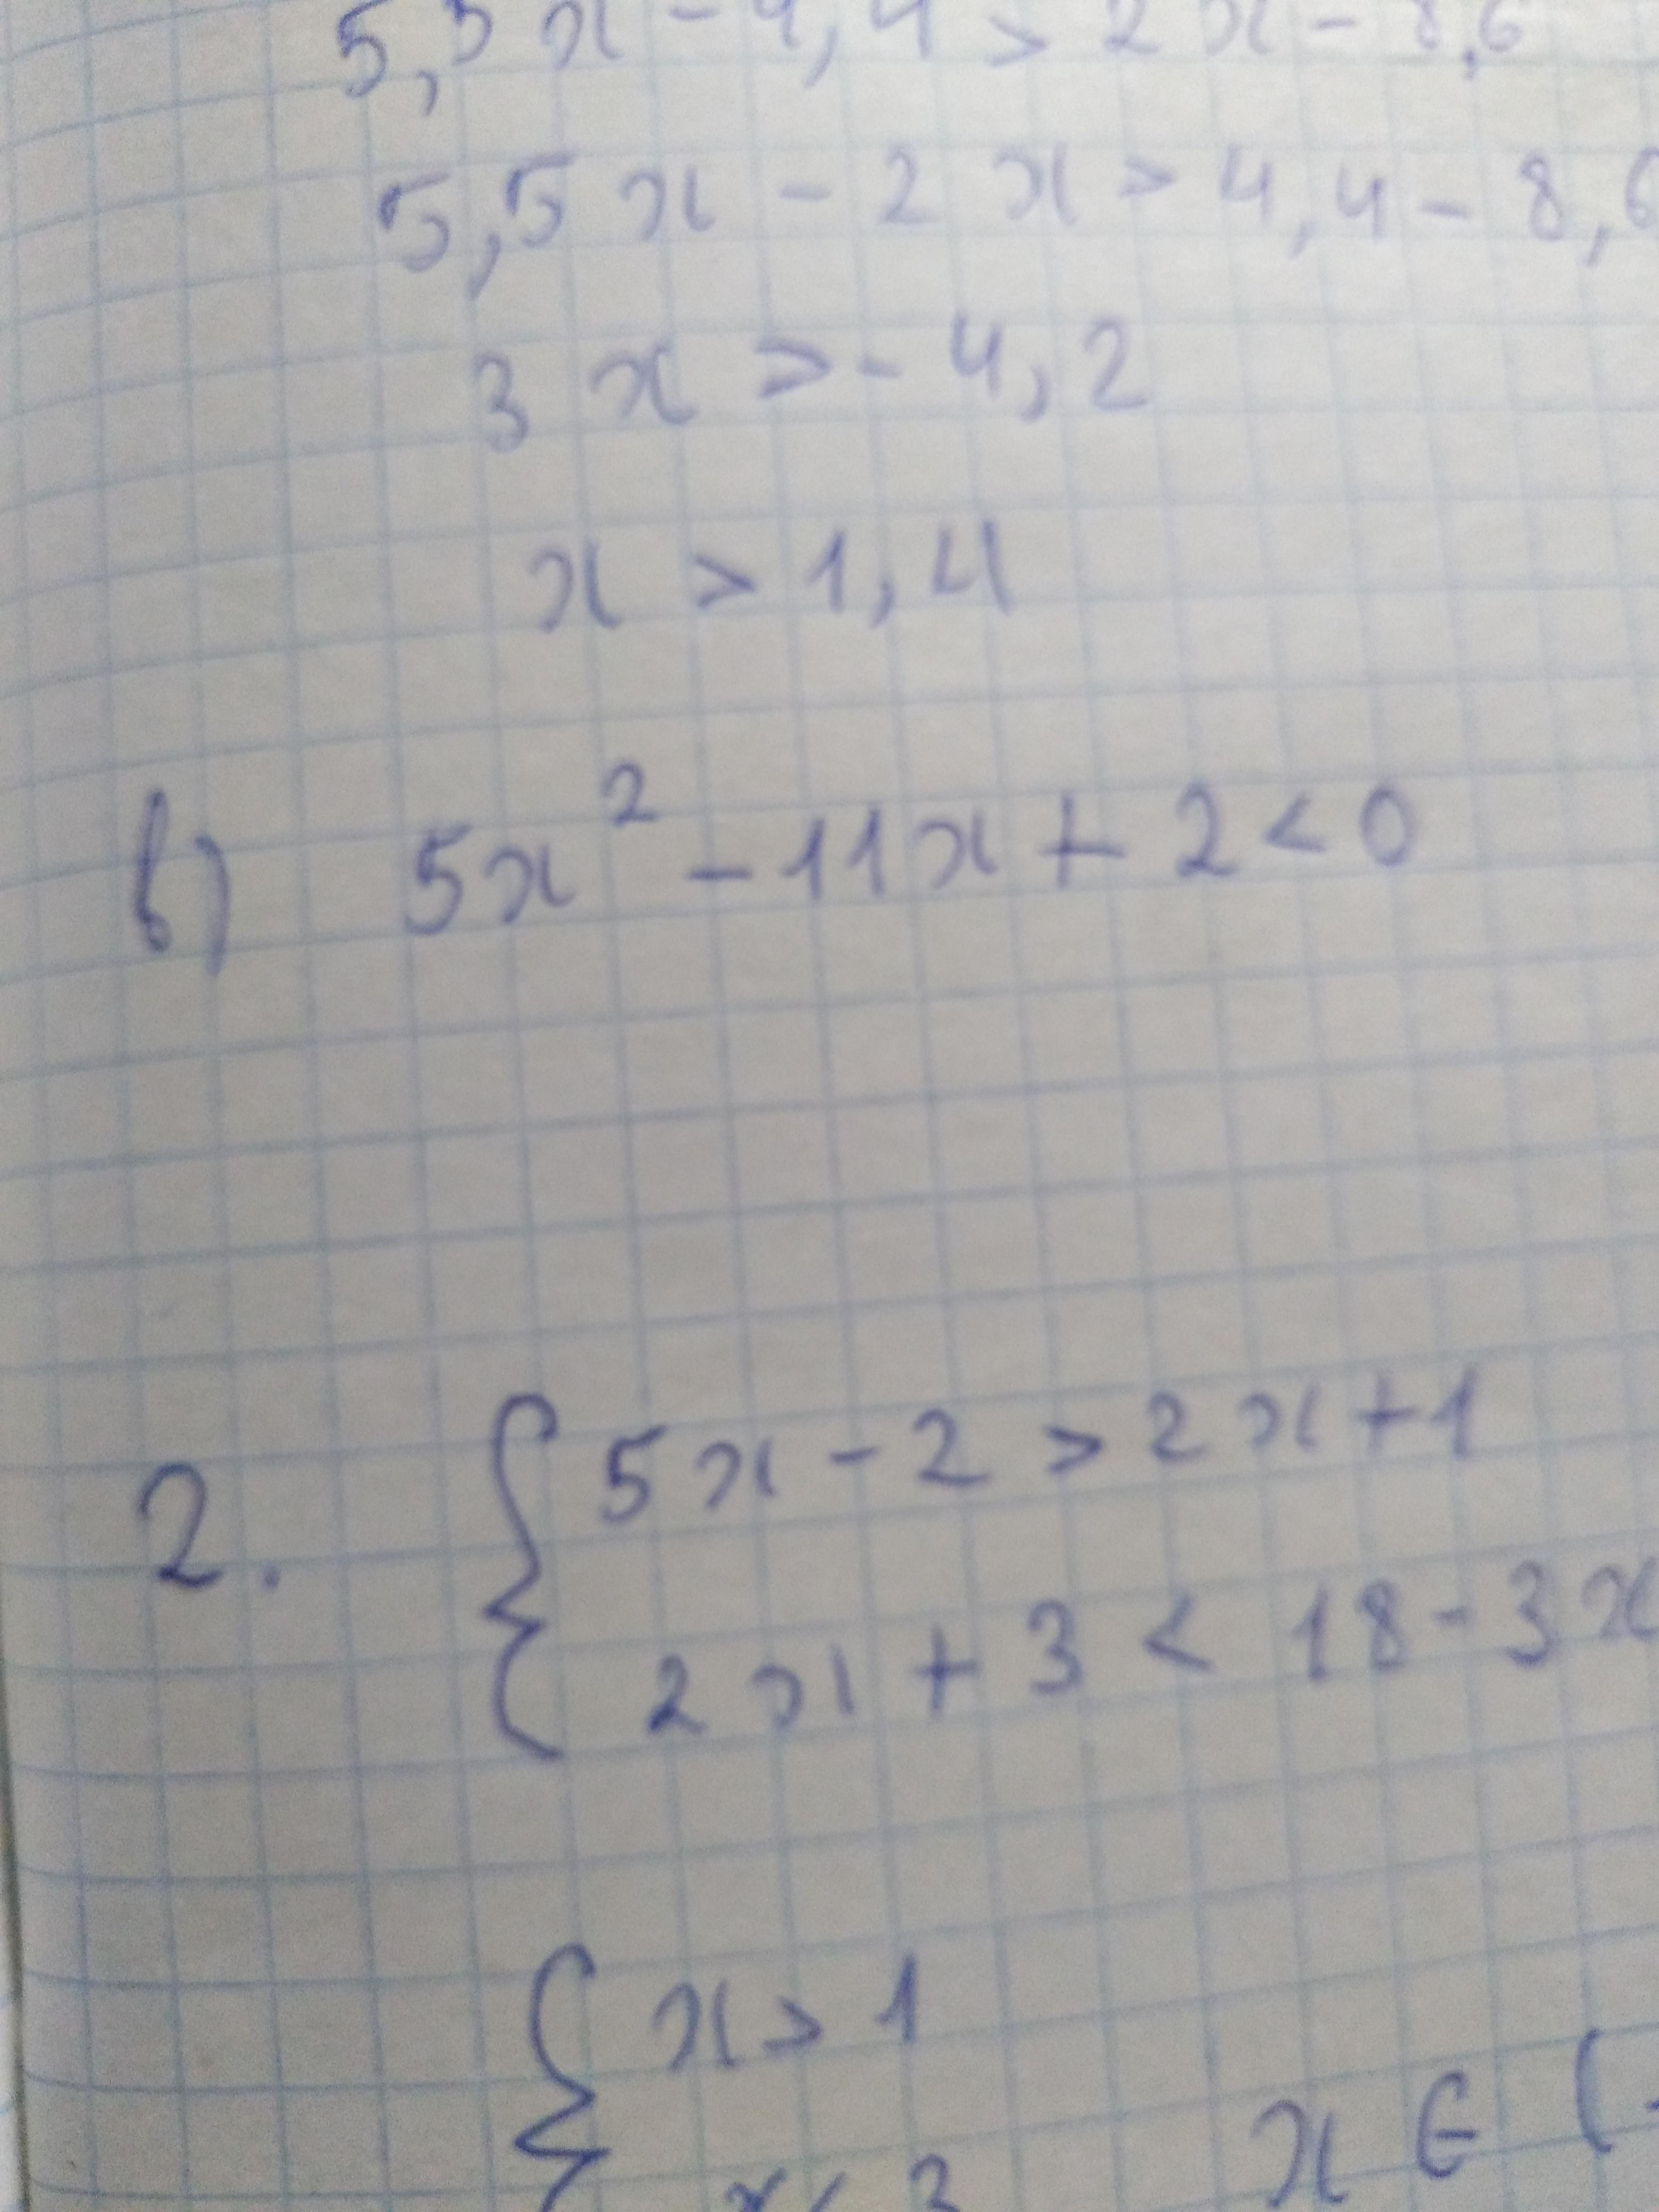 5,5x - 4,4 > 2x - 8,6
5,5x - 2x > 4,4 - 8,6
3x > - 4,2
x > 1,4
в) 5x² - 11x + 2 < 0
2. { 5x - 2 > 2x + 1
2x + 3 < 18 - 3x
{ x > 1
x < 3 x ∈ (